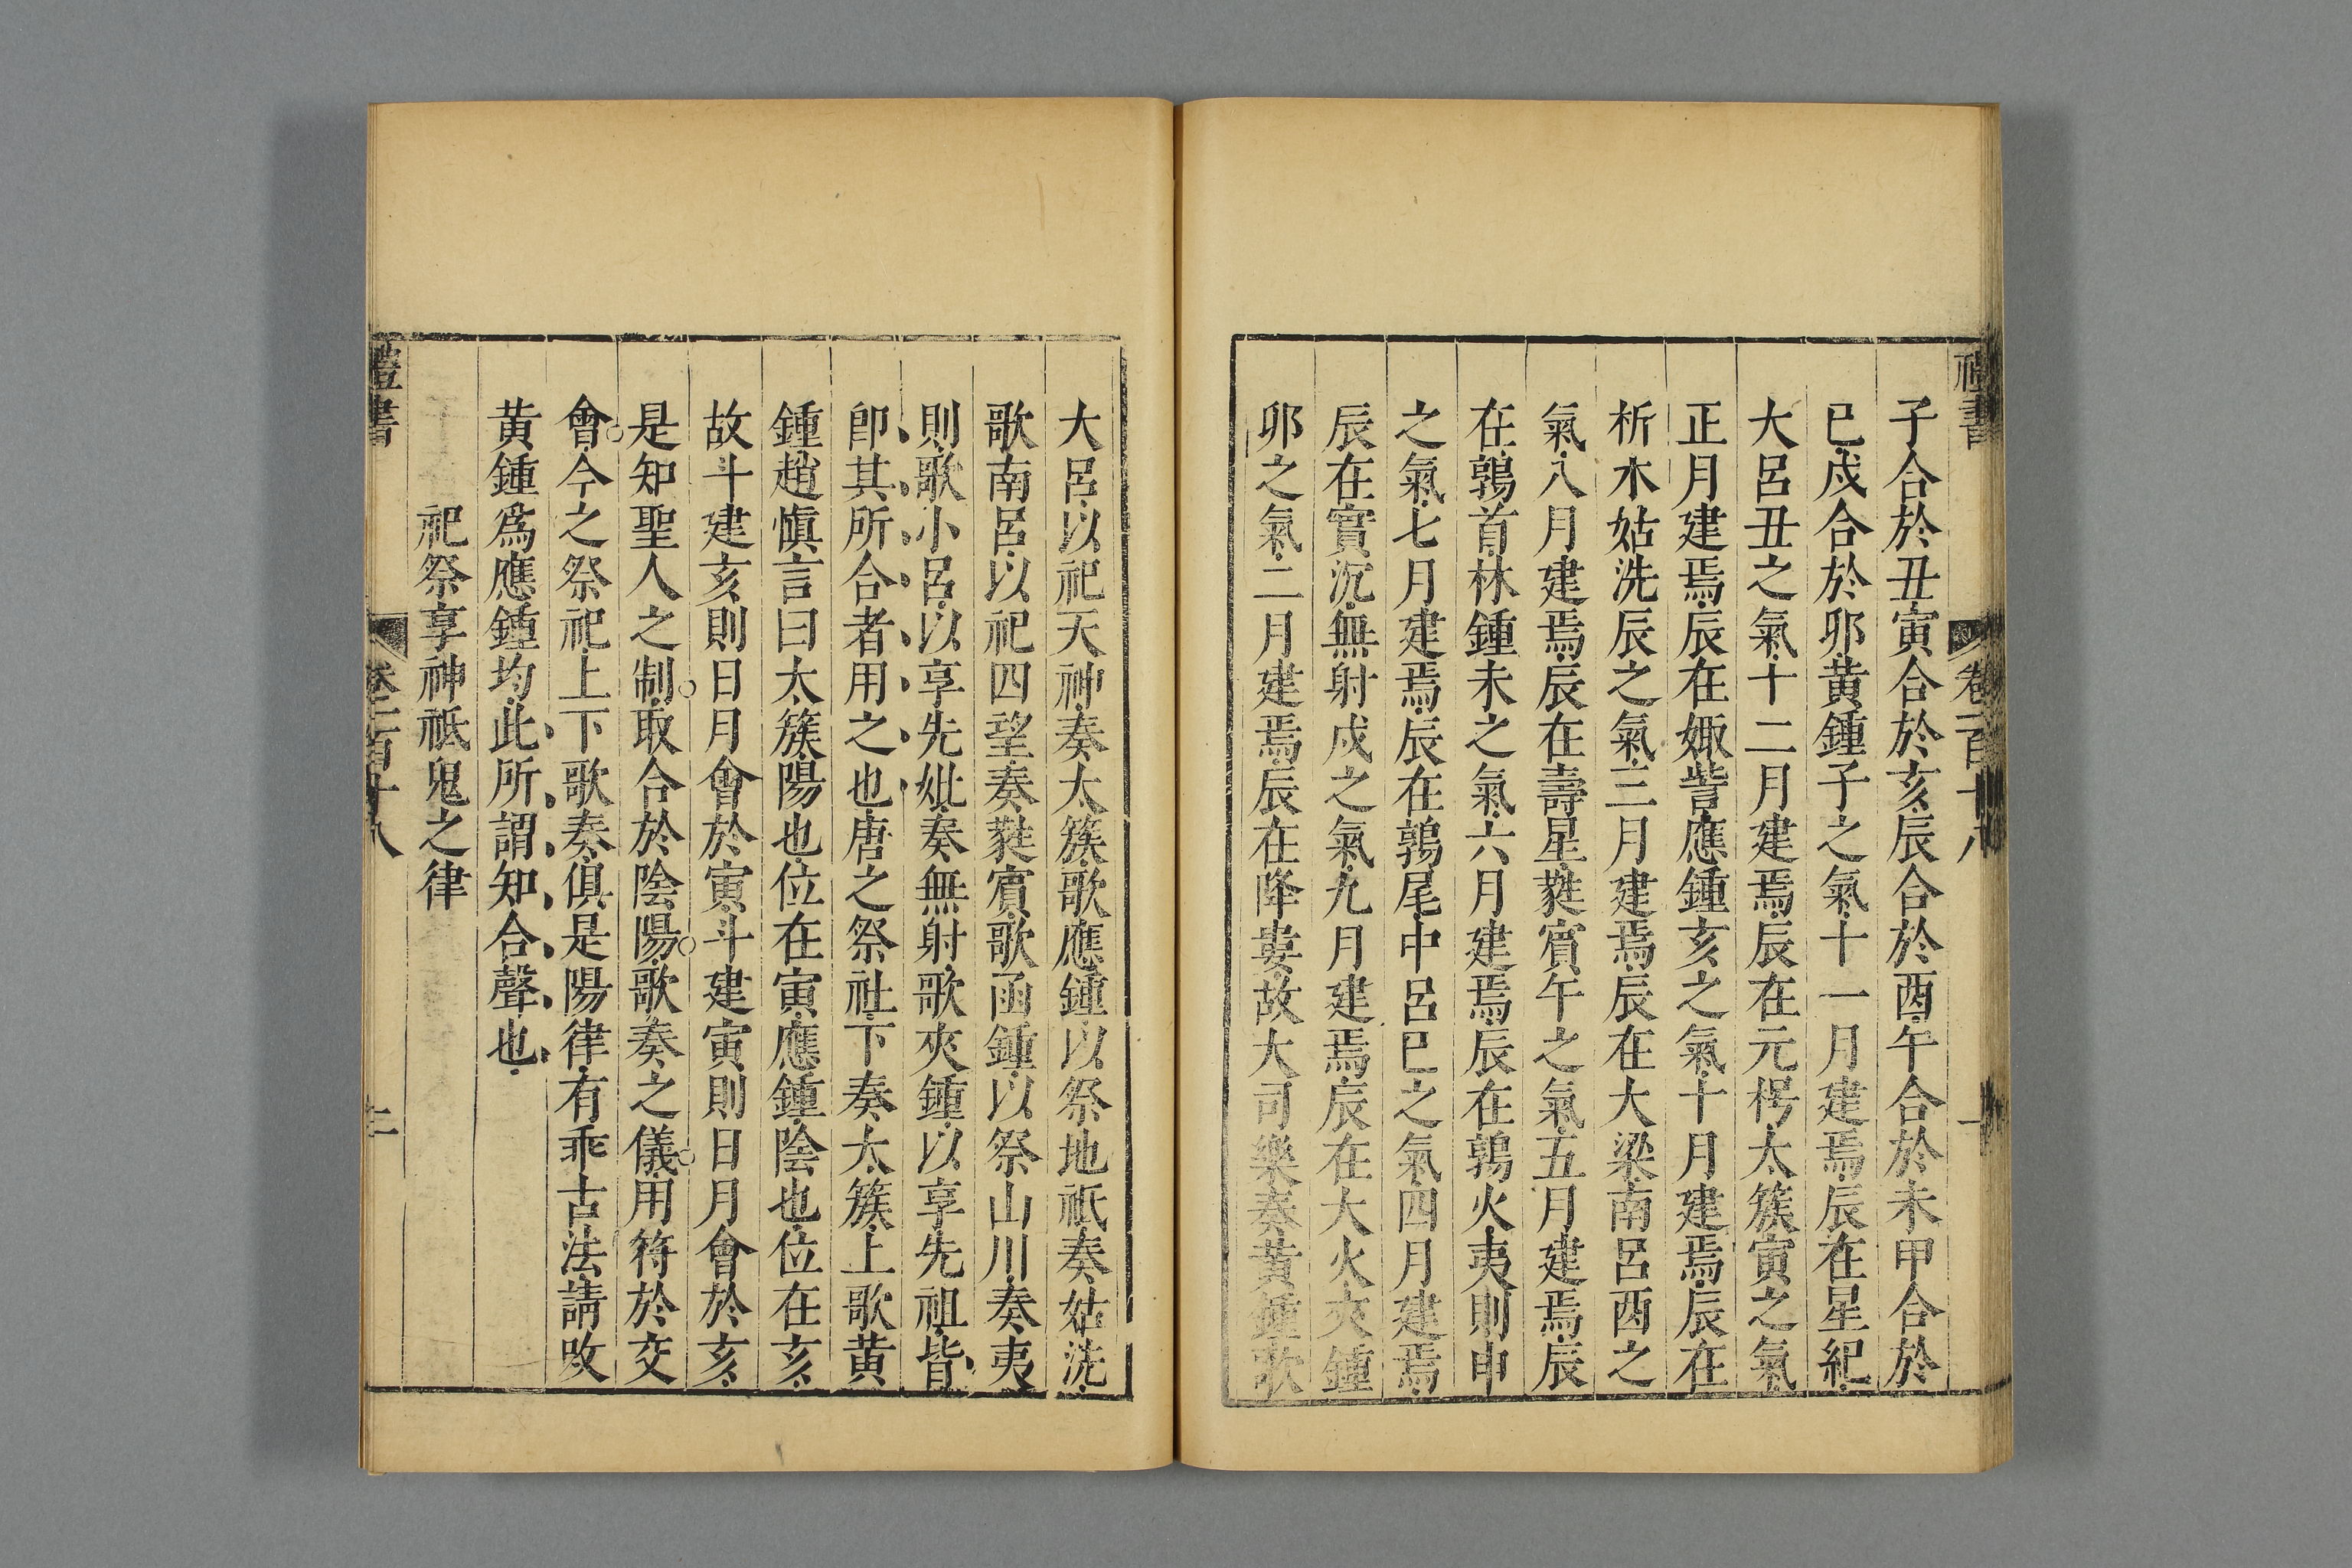 禮書 卷一百十八 一
子合於丑寅合於亥辰合於酉午合於未申合於
巳戌合於卯黄鍾子之氣十一月建焉辰在星紀
大呂丑之氣十二月建焉辰在元枵太簇寅之氣
正月建焉辰在娵訾應鍾亥之氣十月建焉辰在
析木姑洗辰之氣三月建焉辰在大梁南呂酉之
氣八月建焉辰在壽星蕤賓午之氣五月建焉辰
在鶉首林鍾未之氣六月建焉辰在鶉火夷則申
之氣七月建焉辰在鶉尾中呂巳之氣四月建焉
辰在實沉無射戌之氣九月建焉辰在大火夾鍾
卯之氣二月建焉辰在降婁故大司樂奏黄鍾歌
大呂以祀天神奏太簇歌應鍾以祭地祇奏姑洗
歌南呂以祀四望奏蕤賓歌函鍾以祭山川奏夷
則歌小呂以享先妣奏無射歌夾鍾以享先祖皆
卽其所合者用之也唐之祭社下奏太簇上歌黄
鍾趙愼言曰太簇陽也位在寅應鍾陰也位在亥
故斗建亥則日月會於寅斗建寅則日月會於亥
是知聖人之制取合於陰陽歌奏之儀用符於交
會今之祭祀上下歌奏俱是陽律有乖古法請改
黄鍾爲應鍾均此所謂知合聲也
祀祭享神祇鬼之律
禮書 卷一百十八 二